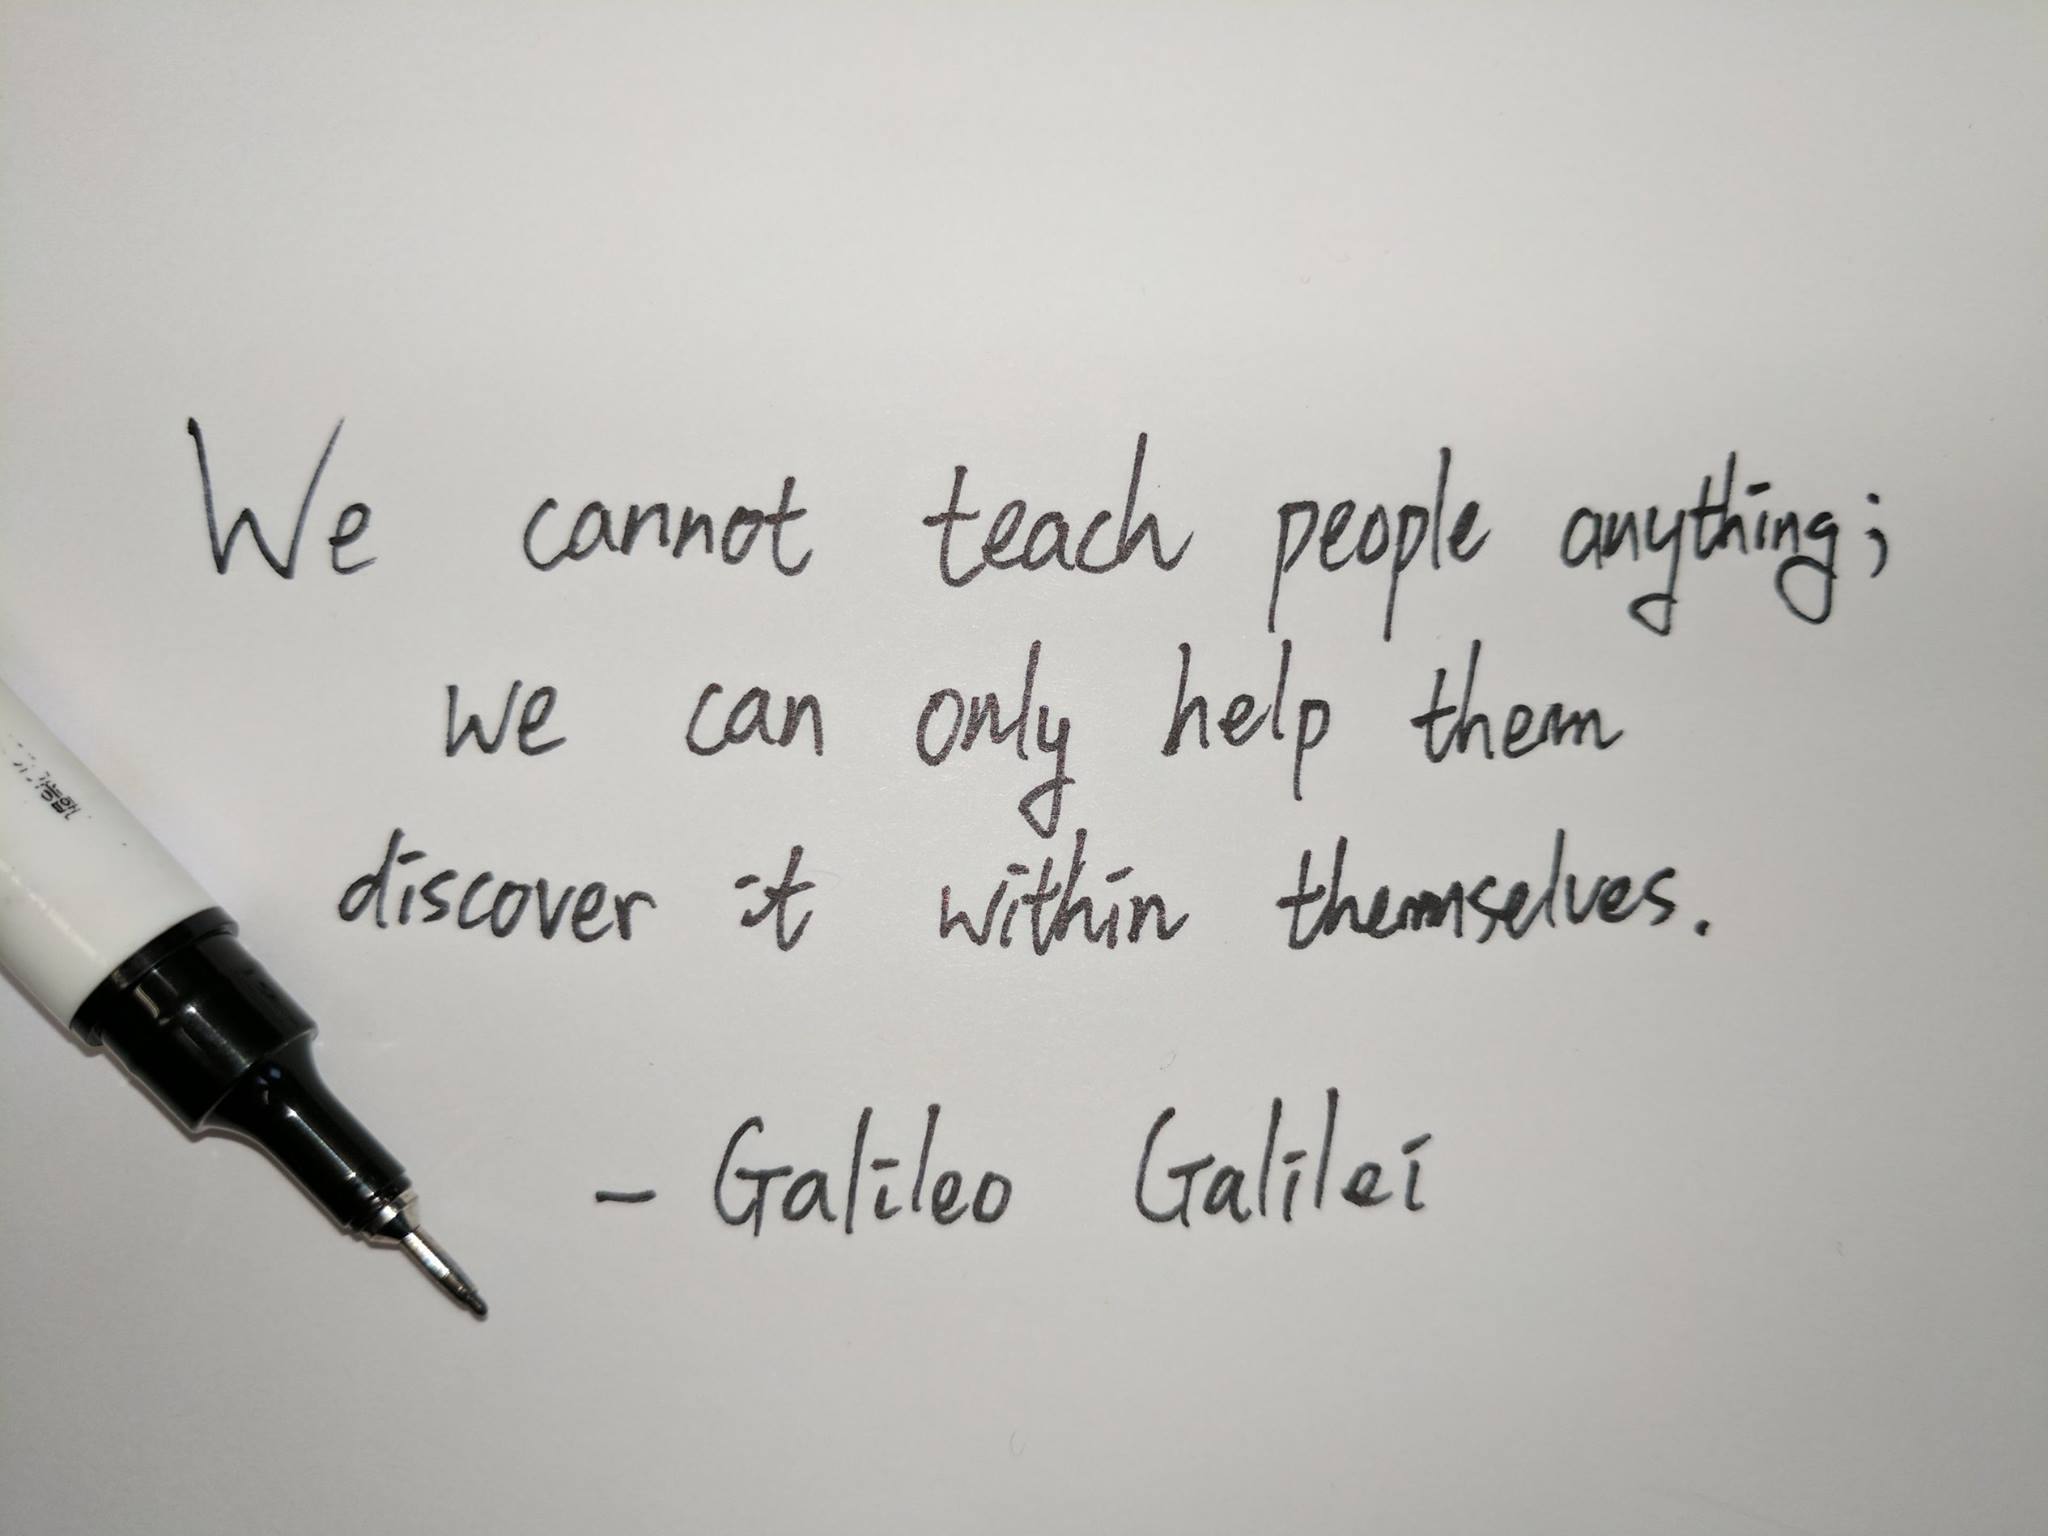 We cannot teach people anything;
we can only help them
discover it within themselves.
- Galileo Galilei